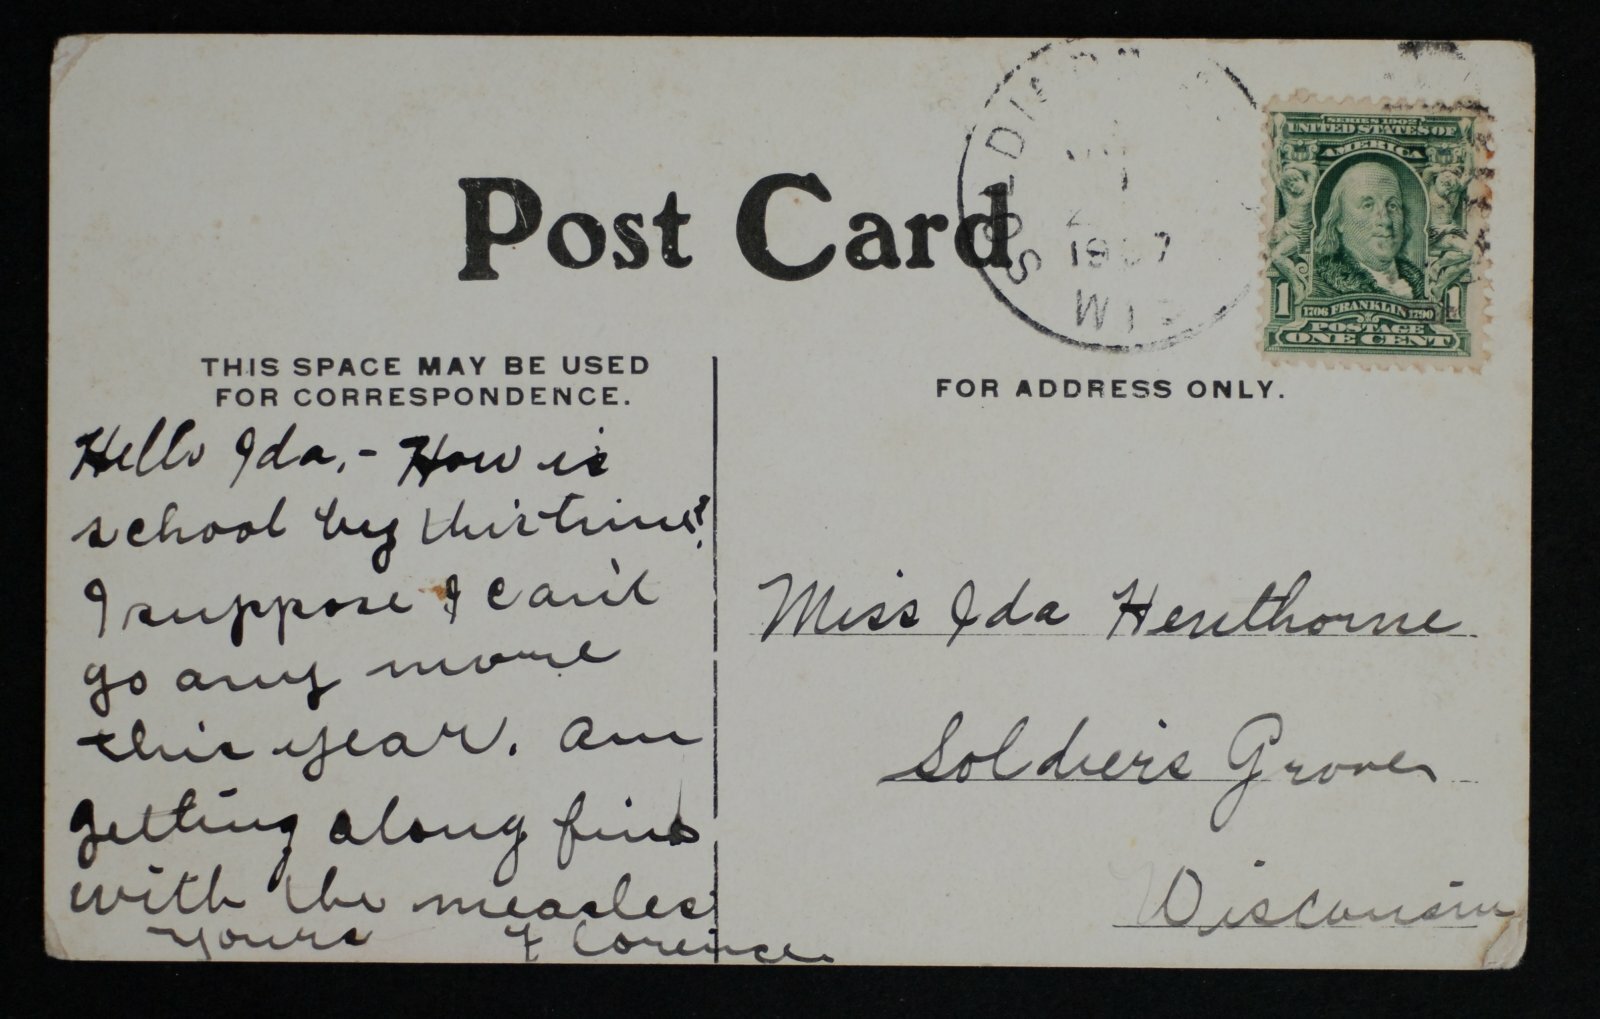 Post Card
SOLDI
1907
WIS
SERIES 1902
UNITED STATES OF
AMERICA
1 1
1706 FRANKLIN 1790
POSTAGE
ONE CENT
THIS SPACE MAY BE USED
FOR CORRESPONDENCE.
Hello Ida,- How is
school by this time?
I suppose I can't
go any more
this year. Am
getting along fine
with the measles
Yours Florence
FOR ADDRESS ONLY.
Miss Ida Henthorne
Soldiers Grove
Wisconsin